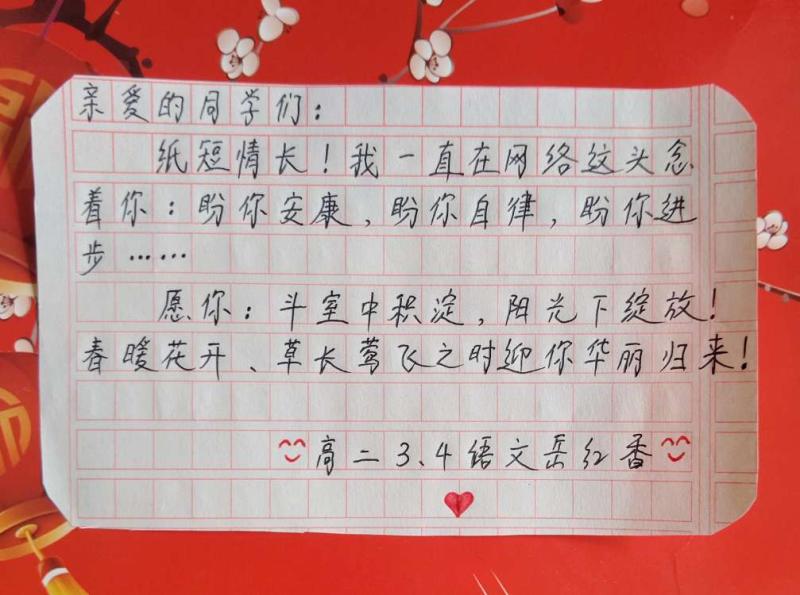 亲爱的同学们:
纸短情长!我一直在网络这头念
着你:盼你安康,盼你自律,盼你进
步……
愿你:斗室中积淀,阳光下绽放!
春暖花开、草长莺飞之时迎你华丽归来!
高二3、4语文岳红香